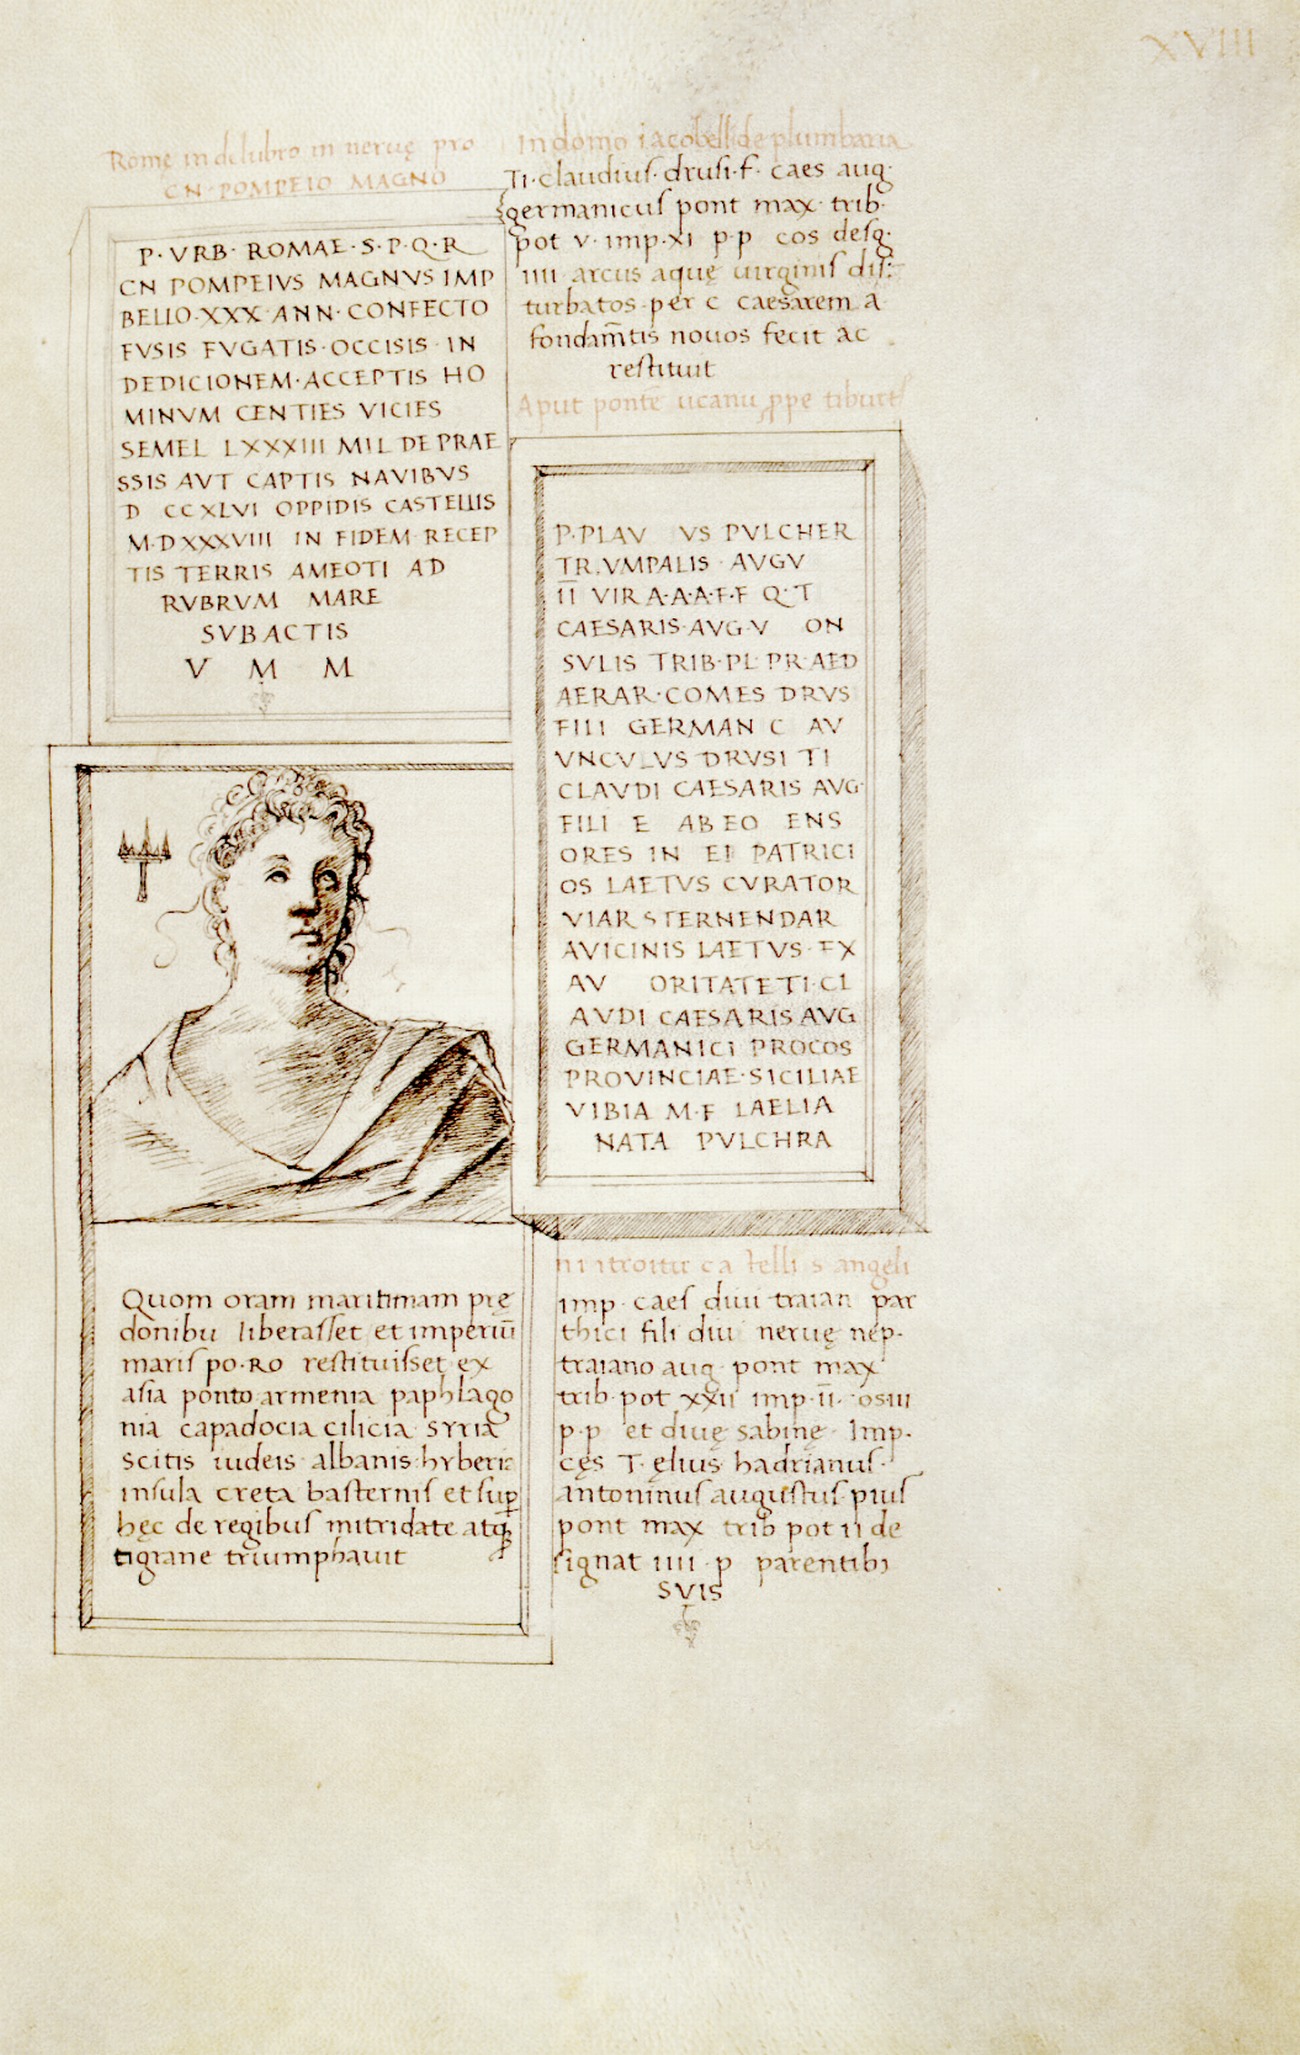 XVIII
Rome in delubro in neruę pro
CN · POMPEIO MAGNO
P · VRB · ROMAE · S · P · Q · R
CN POMPEIVS MAGNVS IMP
BELLO · XXX ANN · CONFECTO
FVSIS FVGATIS · OCCISIS · IN
DEDICIONEM · ACCEPTIS HO
MINVM CENTIES VICIES
SEMEL LXXXIII MIL DE PRAE
SSIS AVT CAPTIS NAVIBVS
D CCXLVI OPPIDIS CASTELLIS
M · DXXXVIII IN FIDEM RECEP
TIS TERRIS AMEOTI AD
RVBRVM MARE
SVBACTIS
V M M
Quom oram maritimam prę
donibu liberasset et imperiū
maris po · RO restituisset ex
asia ponto armenia paphlago
nia capadocia cilicia syria
scitis iudeis albanis hyberia
insula creta basternis et sup
hęc de regibus mitridate atq
tigrane triumphauit
In domo iacobelli de plumbaria
Ti · claudius · drusi · f · caes aug ·
germanicus pont max · trib ·
pot v · imp · xi p · p cos desg ·
iiii arcus aquę uirginis dis:
turbatos · per c caesarem a
fondam̄tis nouos fecit ac
restituit
Aput pontē ucanu ppe tiburt
P · PLAV VS PVLCHER
TR.VMPALIS · AVGV
II VIR A · A · A · F · F Q · T
CAESARIS · AVG · V ON
SVLIS TRIB · PL · PR · AED
AERAR · COMES DRVS
FILI GERMAN C AV
VNCVLVS DRVSI TI
CLAVDI CAESARIS AVG ·
FILI E AB EO ENS
ORES IN EI PATRICI
OS LAETVS CVRATOR
VIAR STERNENDAR
AVICINIS LAETVS · EX
AV ORITATE TI · CL
AVDI CAESARIS AVG
GERMANICI PROCOS
PROVINCIAE · SICILIAE
VIBIA M · F LAELIA
NATA PVLCHRA
n introitu ca telli s angeli
imp · caes diui traian par
thici fili diui neruę nep ·
traiano aug pont max
trib · pot xxii imp · ii · osiii
p · p et diuę sabinę Imp ·
cęs T · ęlius hadrianus ·
antoninus augustus pius
pont max trib pot ii de
signat iiii · p parentibȝ
SVIS